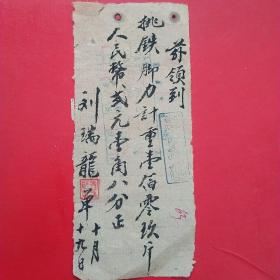 兹领到
挑铁脚力计重壹佰零玖斤
人民幣贰元壹角八分正
刘瑞龍
十月
十九日